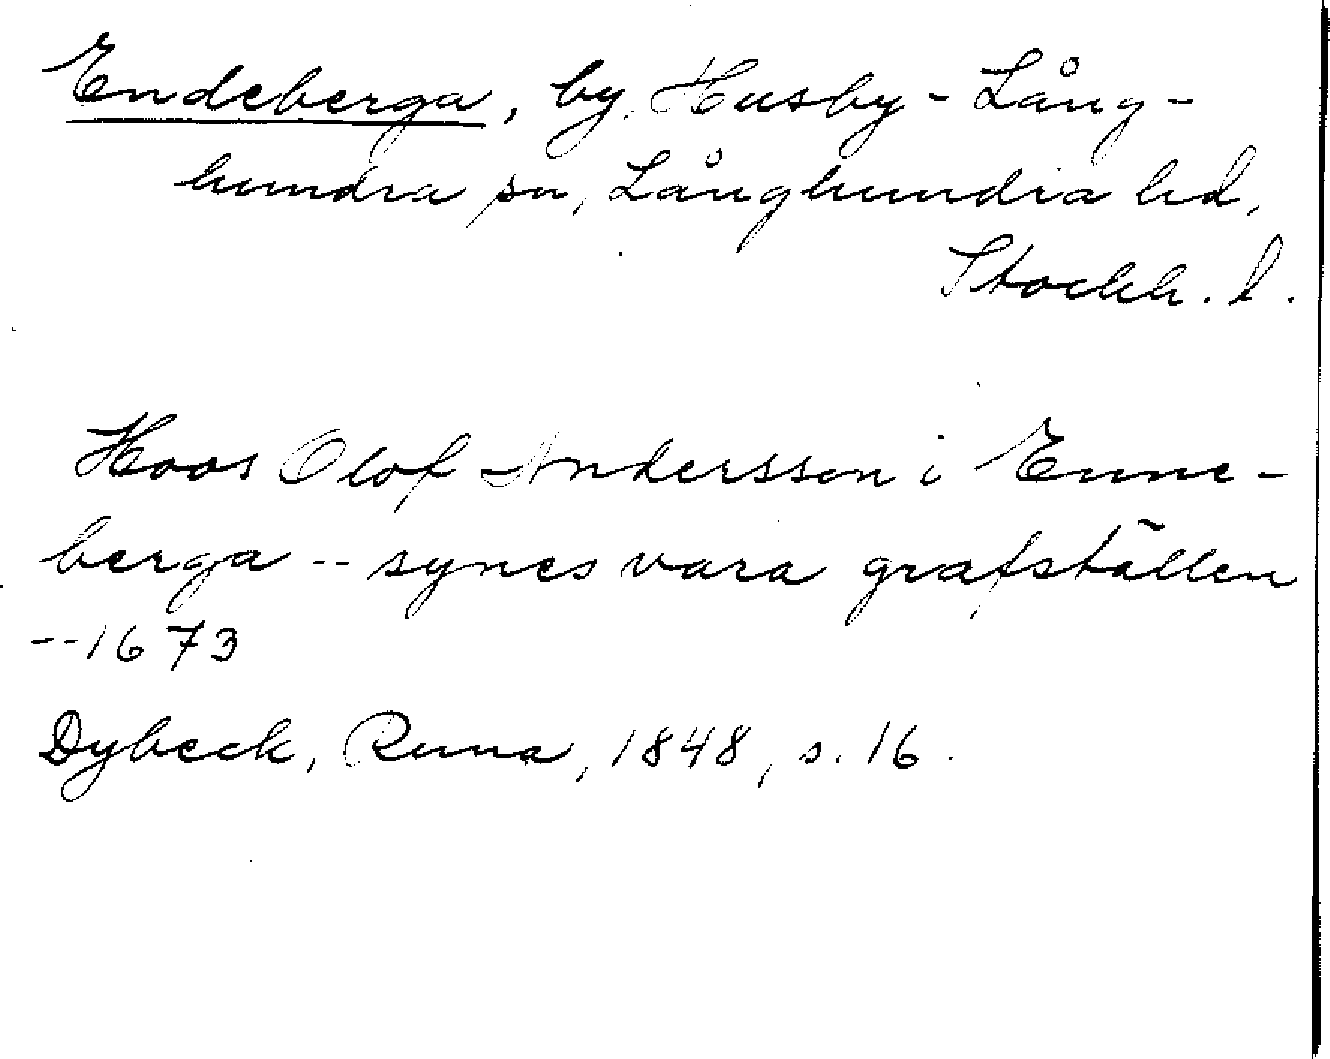 Endeberga, by, Husby-Lång-
hundra sn, Långhundra hd,
Stockh. l.
Hoos Olof Andersson i Enne-
berga -- synes vara grafställen
-- 1673
Dybeck, Runa, 1848, s. 16.